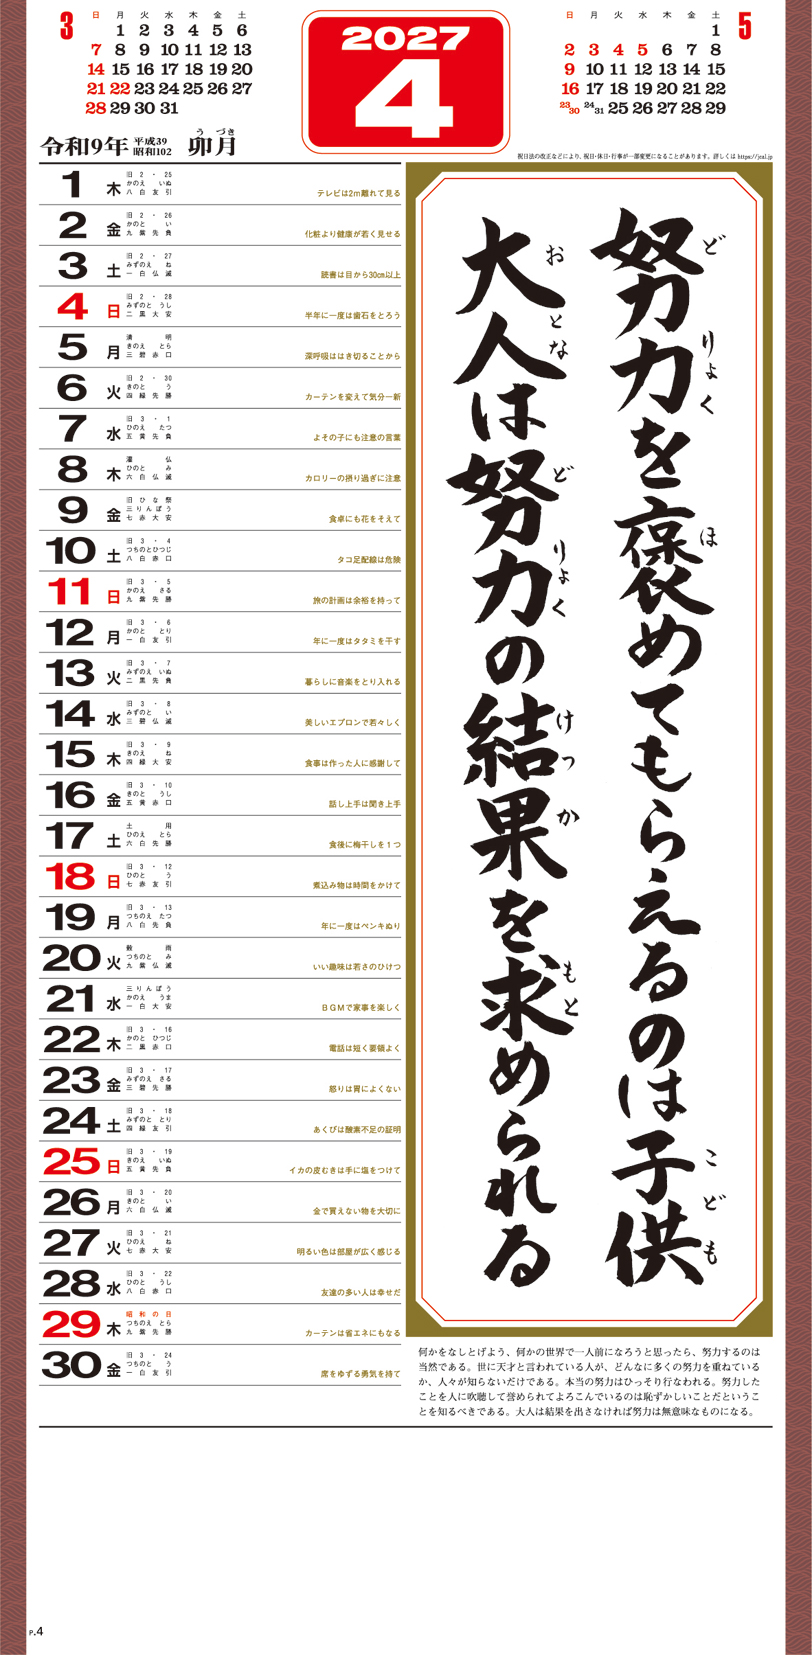 3
日 月 火 水 木 金 土
1 2 3 4 5 6
7 8 9 10 11 12 13
14 15 16 17 18 19 20
21 22 23 24 25 26 27
28 29 30 31
2027
4
5
日 月 火 水 木 金 土
1
2 3 4 5 6 7 8
9 10 11 12 13 14 15
16 17 18 19 20 21 22
23/30 24/31 25 26 27 28 29
令和9年 平成39 昭和102 卯月 う づき
祝日法の改正などにより、祝日・休日・行事が一部変更になることがあります。詳しくは https://jcal.jp
1 木 旧2・25 かのえ いぬ 八白友引 テレビは2m離れて見る
2 金 旧2・26 かのと い 九紫先負 化粧より健康が若く見せる
3 土 旧2・27 みずのえ ね 一白仏滅 読書は目から30㎝以上
4 日 旧2・28 みずのと うし 二黒大安 半年に一度は歯石をとろう
5 月 清明 きのえ とら 三碧赤口 深呼吸ははき切ることから
6 火 旧2・30 きのと う 四緑先勝 カーテンを変えて気分一新
7 水 旧3・1 ひのえ たつ 五黄先負 よその子にも注意の言葉
8 木 灌仏 ひのと み 六白仏滅 カロリーの摂り過ぎに注意
9 金 旧ひな祭 三りんぼう 七赤大安 食卓にも花をそえて
10 土 旧3・4 つちのとひつじ 八白赤口 タコ足配線は危険
11 日 旧3・5 かのえ さる 九紫先勝 旅の計画は余裕を持って
12 月 旧3・6 かのと とり 一白友引 年に一度はタタミを干す
13 火 旧3・7 みずのえ いぬ 二黒先負 暮らしに音楽をとり入れる
14 水 旧3・8 みずのと い 三碧仏滅 美しいエプロンで若々しく
15 木 旧3・9 きのえ ね 四緑大安 食事は作った人に感謝して
16 金 旧3・10 きのと うし 五黄赤口 話し上手は聞き上手
17 土 土用 ひのえ とら 六白先勝 食後に梅干しを1つ
18 日 旧3・12 ひのと う 七赤友引 煮込み物は時間をかけて
19 月 旧3・13 つちのえ たつ 八白先負 年に一度はペンキぬり
20 火 穀雨 つちのと み 九紫仏滅 いい趣味は若さのひけつ
21 水 三りんぼう かのえ うま 一白大安 BGMで家事を楽しく
22 木 旧3・16 かのと ひつじ 二黒赤口 電話は短く要領よく
23 金 旧3・17 みずのえ さる 三碧先勝 怒りは胃によくない
24 土 旧3・18 みずのと とり 四緑友引 あくびは酸素不足の証明
25 日 旧3・19 きのえ いぬ 五黄先負 イカの皮むきは手に塩をつけて
26 月 旧3・20 きのと い 六白仏滅 金で買えない物を大切に
27 火 旧3・21 ひのえ ね 七赤大安 明るい色は部屋が広く感じる
28 水 旧3・22 ひのと うし 八白赤口 友達の多い人は幸せだ
29 木 昭和の日 つちのえ とら 九紫先勝 カーテンは省エネにもなる
30 金 旧3・24 つちのと う 一白友引 席をゆずる勇気を持て
努力を褒めてもらえるのは子供
ど りょく ほ こ ども
大人は努力の結果を求められる
おとな ど りょく けっ か もと
何かをなしとげよう、何かの世界で一人前になろうと思ったら、努力するのは
当然である。世に天才と言われている人が、どんなに多くの努力を重ねている
か、人々が知らないだけである。本当の努力はひっそり行なわれる。努力した
ことを人に吹聴して誉められてよろこんでいるのは恥ずかしいことだというこ
とを知るべきである。大人は結果を出さなければ努力は無意味なものになる。
P.4